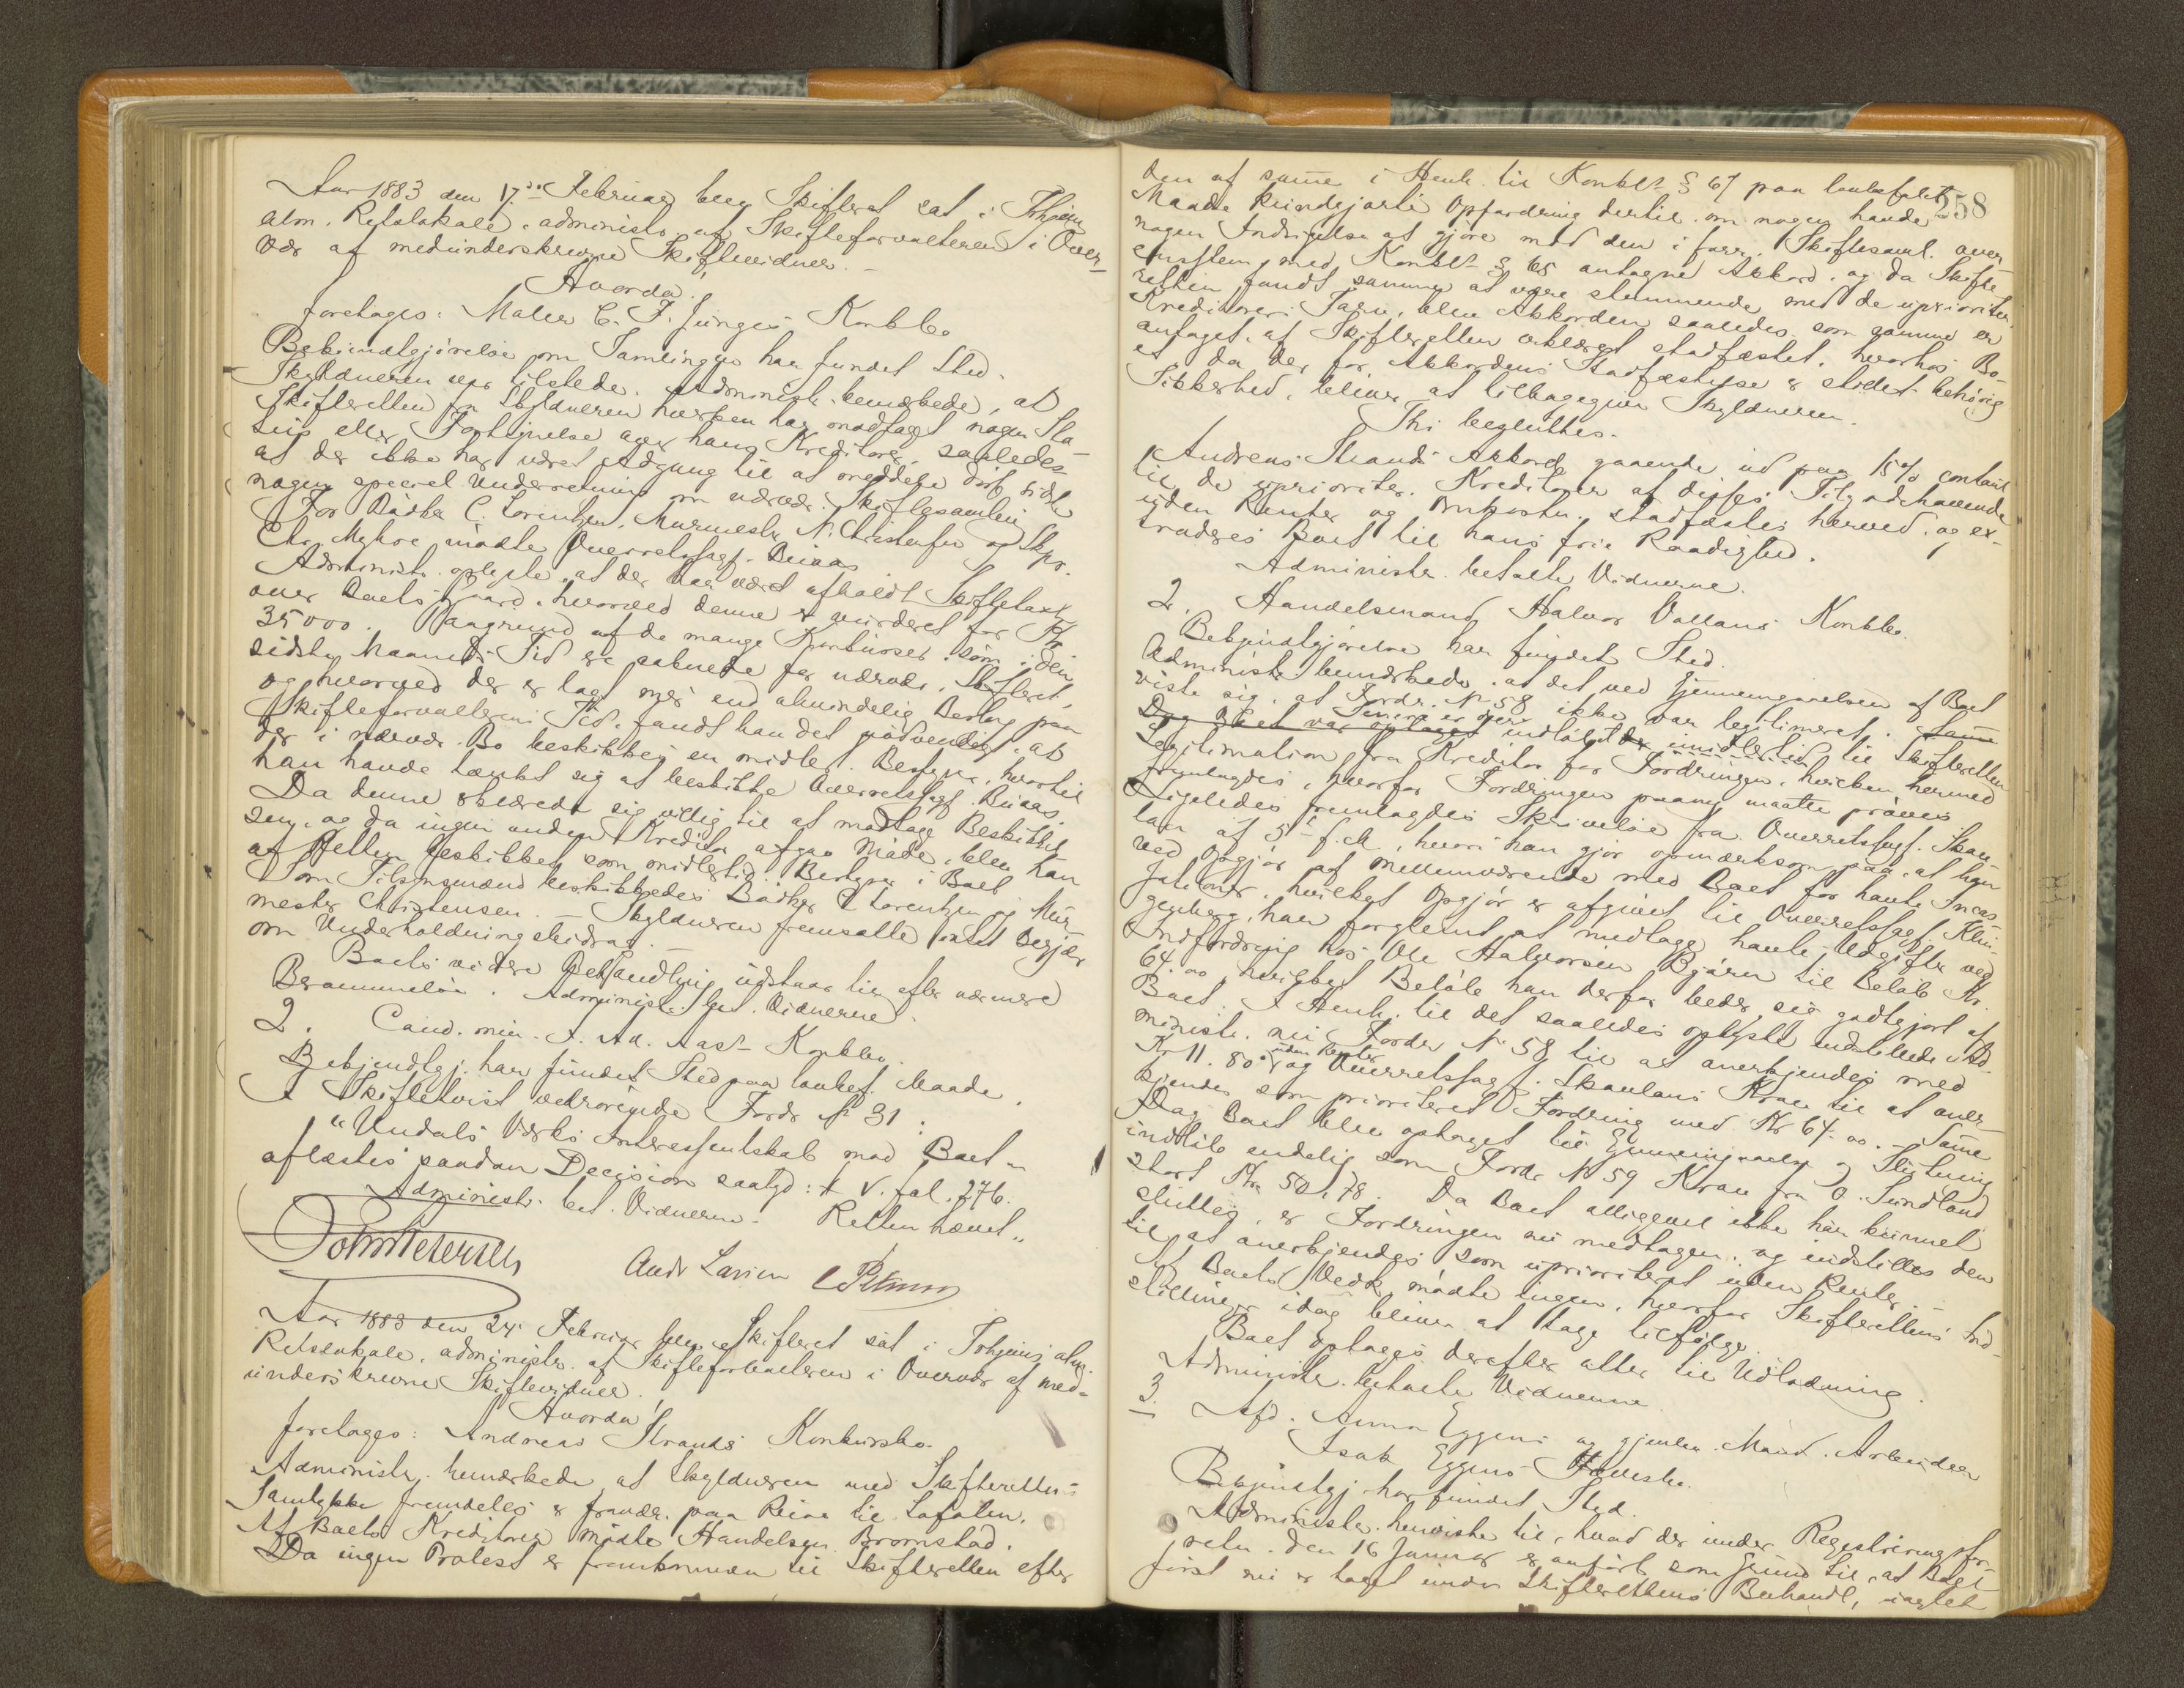 Aar 1883 den 17de Februar blev Skifteret sat i Thjems
alm. Retslokale, administr. af Skifteforvalteren i Over-
vær af medunderskrevne Skiftevidner. –
Hvorda
foretoges: Maler C. F. Junges Konkbo
Bekjendtgjørelse om Samlingen har fundet Sted.
Skyldneren var tilstede. Administr. bemærkede, at
Skifteretten fra Skyldneren hverken har modtaget nogen Sta-
tus eller Fortegnelse over hans Kreditorer, saaledes
at der ikke har været Adgang til at meddele disse
nogen speciel Underretning om nærvær. Skiftesamling
For Bødker C. Lorentzen, Murmester N. Christensen og Skpr.
Chr. Myhre mødte Overretssagf. Buaas
Administr. oplyste, at der har været afholdt Skiftetaxt
over Boets Gaard, hvorved denne er vurderet for Kr
35000. Paagrund af de mange Konkurser, som i den
sidste Maaneds Tid ere aabnede for nærvær. Skifteret,
og hvorved der er lagt mer end almindelig Beslag paa
Skifteforvalterens Tid, fandt han det nødvendigt, at
der i nærvær. Bo beskikkes en midlert. Bestyrer, hvortil
han havde tænkt sig at beskikke Overretssagf. Buaas.
Da denne erklærede sig villig til at modtage Beskikkel-
sen, og da ingen anden Kreditor afgav Møde, blev han
af Retten beskikket som midlertid. Bestyrer i Boet
Som Tilsynsmænd beskikkedes Bødker C Lorentzen og Mur-
mester Christensen. – Skyldneren fremsatte intet Begjær
om Underholdningsbidrag. –
Boets videre Behandling udstaar til efter nærmere
Berammelse. Administr. bet. Vidnerne.
2. Cand. min. A. Ad. Aas's Konkbo.
Bekjendtgj. har fundet Sted paa lovbef. Maade.
I Skiftetvist vedrørende Fordr. No 31:
"Undals Værks Interessentskab mod Boet"
aflæstes saadan Decision saalyd: V. fol. 276.
Administr. bet. Vidnerne. Retten hævet"
John Petersen
Andr Larsen
Aar 1883 den 24 Februar blev Skifteret sat i Tohjems alm.
Retslokale, administr. af Skifteforvalteren i Overvær af med-
underskrevne Skiftevidner.
Hvorda!
foretoges: Andreas Strands Konkursbo.
Administr. bemærkede, at Skyldneren med Skifterettens
Samtykke fremdeles er fravær. paa Reise til Lofoten.
Af Boets Kreditorer mødte Handelsm. Bromstad.
Da ingen Protest er fremkommen til Skifteretten efter
258
den af samme i Henh. til Konkl. § 67 paa lovbefalet
Maade kundgjorte Opfordring dertil, om nogen havde
nogen Indsigelse at gjøre mod den i forr. Skiftesaml. over-
ensstem. med Konkl. § 65 antagne Akkord, og da Skifte-
retten fandt samme at være stemmende med de uprioriter.
Kreditorers Tarv, blev Akkorden saaledes som samme er
antaget, af Skifteretten erklæret stadfæstet, hvorhos Bo-
et, da der for Akkordens Stadfæstelse er stillet behørig
Sikkerhed, bliver at tilbagegive Skyldneren.
Thi besluttes.
Andreas Strands Akkord gaaende ud paa 15% contant
til de uprioriter. Kreditorer af disses Tilgodehavende
uden Renter og Omkostn. stadfæstes herved, og ex-
traderes Boet til hans frie Raadighed.
Administr. betalte Vidnerne.
2. Handelsmand Halvor Vollans Konkbo.
Bekjendtgjørelse har fundet Sted.
Administr. bemærkede, at det ved Gjennemgaaelsen af Boet
viste sig, at Fordr. No 58 ikke var legitimeret. Samme
Dag Boet var optaget Senere er der indløbet der imidlertid til Skifteretten
Legitimation fra Kreditor for Fordringen, hvilken hermed
fremlagdes, hvorfor Fordringen paany maatte prøves.
Ligeledes fremlagdes Skrivelse fra Overretssagf. Skav-
lan af 5te f. M., hvori han gjør opmærksom paa, at han
ved Opgjør af Mellemværende med Boet for havte Incas-
sationer, hvilket Opgjør er afgivet til Overretssagf. Klin-
genberg, har forglemt at medtage havte Udgifter ved
Indfordring hos Ole Halvorsen Bjøren til Beløb Kr.
64.00, hvilket Beløb han derfor beder sig godtgjort af
Boet. I Henh. til det saaledes oplyste indstillede Ad-
ministr. nu Fordr. No 58 til at anerkjendes med
Kr 11.80 uden Renter og Overretssagf. Skavlans Krav til at aner-
kjendes som prioriteret Fordring med Kr 64.00. – Samme
Dag Boet blev optaget til Gjennemgaaelse og Slutning
indløb endelig som Fordr. No 59 Krav fra O. Sundland
stort Kr. 50.78. Da Boet alligevel ikke har kunnet
sluttes, er Fordringen nu medtagen, og indstilles den
til at anerkjendes som uprioriteret uden Renter.
Af Boets Vedk. mødte ingen, hvorfor Skifterettens Ind-
stillinger idag bliver at tage tilfølge.
Boet optoges derefter atter til Udlodning.
Administr. betalte Vidnerne.
3. Afd. Anna Eggens og gjenlev. Mand. Arbeider
Isak Eggens Fællesbo.
Bekjendtgj. har fundet Sted.
Administr. henviste til, hvad der under Registreringsfor-
retn. den 16 Januar er anført som Grund til, at Boet
først nu er taget under Skifterettens Behandl., uagtet